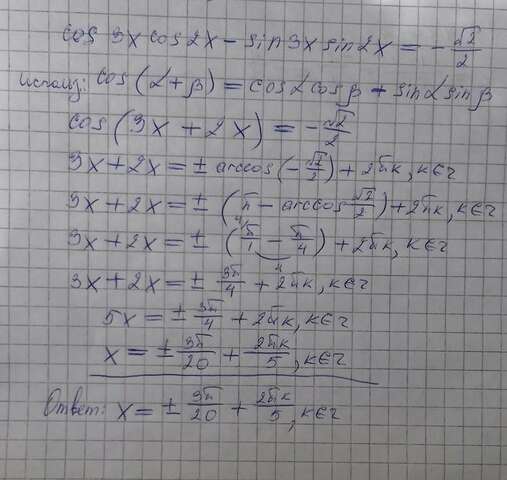 cos 3x cos 2x - sin 3x sin 2x = - √2/2
использ: cos(α+β) = cosα cosβ + sinα sinβ
cos(3x + 2x) = - √2/2
3x + 2x = ± arccos(- √2/2) + 2πk, k∈z
3x + 2x = ± (π - arccos √2/2) + 2πk, k∈z
3x + 2x = ± (π/1 - π/4) + 2πk, k∈z
3x + 2x = ± 3π/4 + 2πk, k∈z
5x = ± 3π/4 + 2πk, k∈z
x = ± 3π/20 + 2πk/5, k∈z
Ответ: x = ± 3π/20 + 2πk/5, k∈z